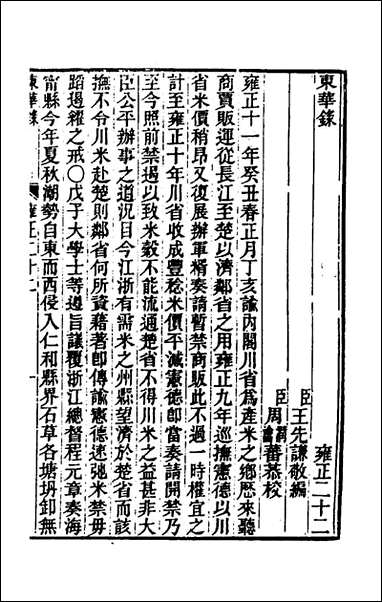 東華錄
雍正二十二
臣王先謙敬編
臣周潤蕃恭校
雍正十一年癸丑春正月丁亥諭內閣川省爲產米之鄉歷來聽
商賈販運從長江至楚以濟鄰省之用雍正九年巡撫憲德以川
省米價稍昂又復展辦軍糈奏請暫禁商販此不過一時權宜之
計至雍正十年川省收成豐稔米價平減憲德卽當奏請開禁乃
至今照前禁遏以致米穀不能流通楚省不得川米之益甚非大
臣公平辦事之道況目今江浙有需米之州縣望濟於楚省而該
撫不令川米赴楚則鄰省何所資藉著卽傳諭憲德速弛米禁毋
蹈遏糴之戒○戊子大學士等遵旨議覆浙江總督程元章奏海
甯縣今年夏秋湖勢自東而西侵入仁和縣界石草各塘坍卸無
東華錄
雍正二十二
一